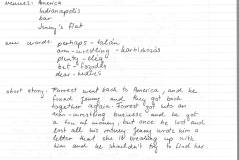 venues: America
Indianapolis
bar
Jenny's flat
new words: perhaps - talán
arm-wrestling - karbirkózás
plenty - elég
bet - fogadás
dear - kedves
short story: Forrest went back to America, and he
found Jenny and they got back
together again. Forrest got into an
arm-wrestling business and he got
a ton of money, but once he lost and
lost all his money. Jenny wrote him a
letter that she is breaking up with
him and he shouldn't try to find her